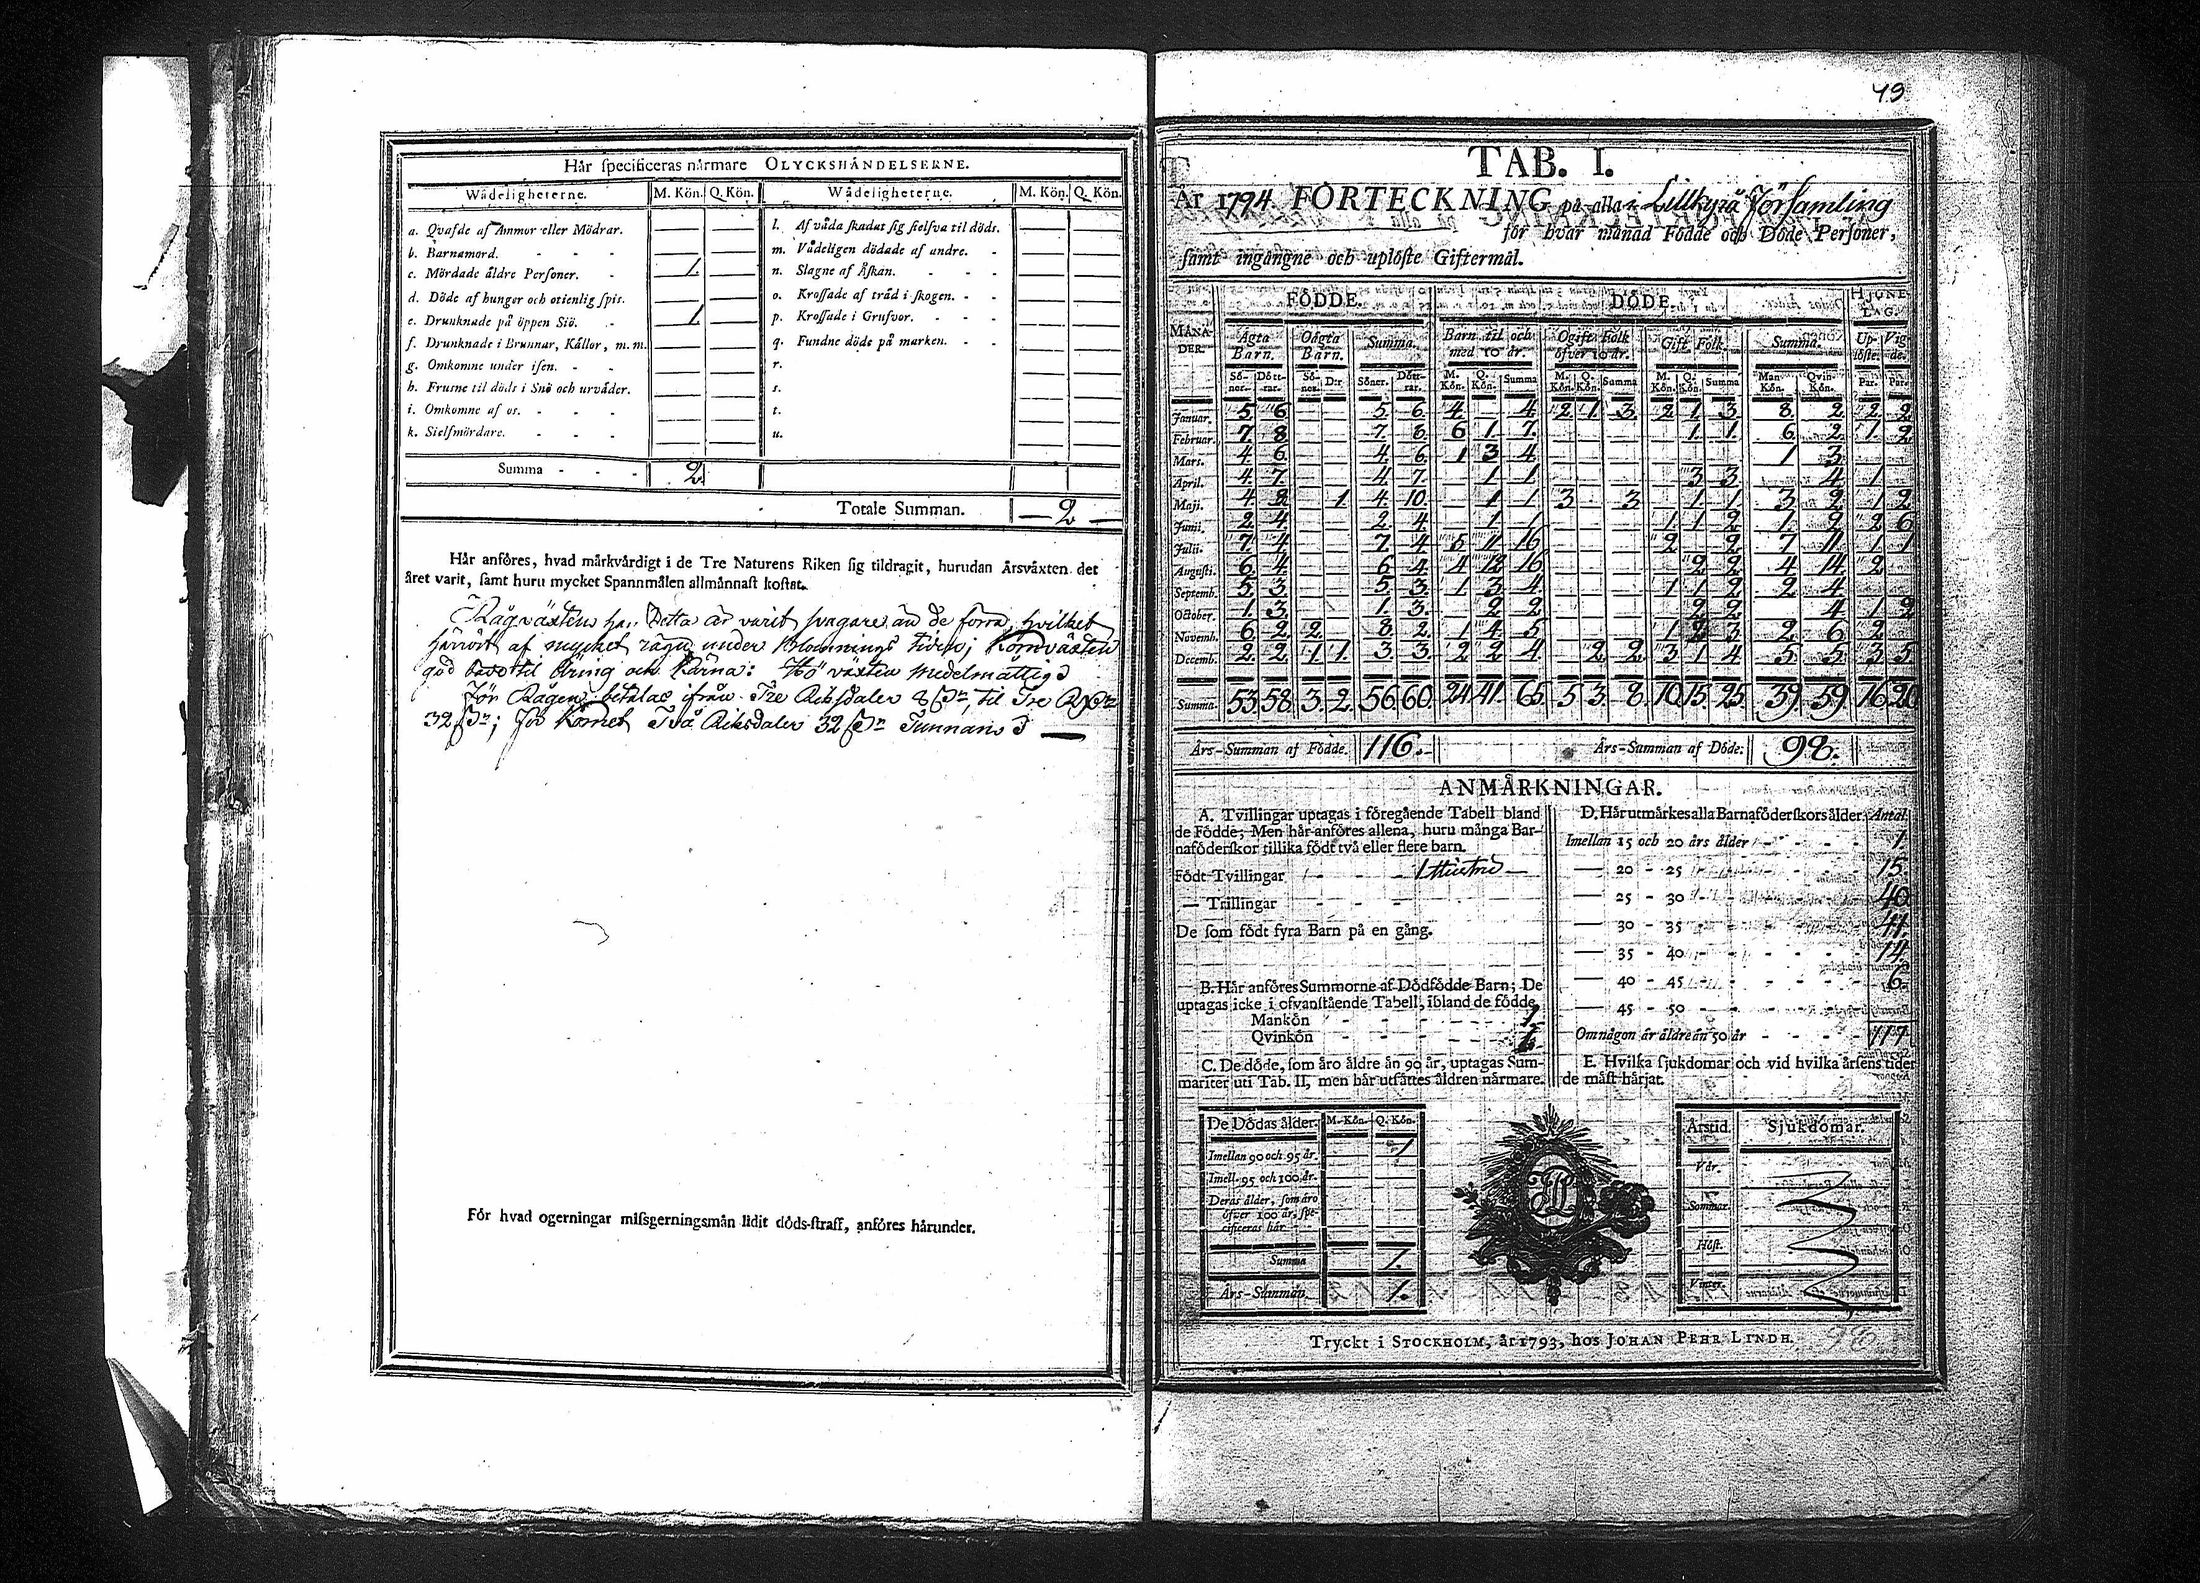 Hår specificeras nårmare OLYCKSHÅNDELSERNE.
Wådeligheterne. M. Kön. Q. Kön. Wådeligheterne. M. Kön. Q. Kön.
a. Qvafde af Ammor eller Mödrar.
b. Barnamord. - - -
c. Mördade åldre Personer. - 1.
d. Döde af hunger och otienlig spis.
e. Drunknade på öppen Siö. - 1
f. Drunknade i Brunnar, Kållor, m. m.
g. Omkomne under isen. - -
h. Frusne til döds i Snö och urvåder.
i. Omkomne af os. - - -
k. Sielfmördare. - - -
l. Af våda skadat sig sielfva til döds.
m. Vådeligen dödade af andre. -
n. Slagne af Åskan. - - -
o. Krossade af tråd i skogen. - -
p. Krossade i Grufvor. - - -
q. Fundne döde på marken. - -
r.
s.
t.
u.
Summa - - - 2
Totale Summan. — 2 —
Hår anföres, hvad mårkvårdigt i de Tre Naturens Riken sig tildragit, hurudan Årsvåxten det
året varit, samt huru mycket Spannmålen allmånnast kostat.
Rågväxten har detta år varit svagare än de förra, hvilket
härrört af mycket rägn under Blomnings tiden; Kornväxten
god både til äring och Kärna: Hö växten medelmåttig
För Rågen betalas ifrån Tre Riksdaler 8 til Tre
32 ; för Kornet Två Riksdaler 32 Tunnan
För hvad ogerningar missgerningsmån lidit döds-straff, anföres hårunder.
49
TAB. I.
År 1794. FÖRTECKNING på alla i Lillkyrå Församling
för hvar månad Födde och Döde Personer,
samt ingångne och uplöste Giftermål.
FÖDDE. DÖDE. HJONELAG.
MÅNADER. Ågta Barn. Oågta Barn. Summa. Barn til och med 10 år. Ogift Folk öfver 10 år. Gift Folk. Summa. Uplöste. Vigde.
Söner. Döttrar. Söner. D:r Söner. Döttrar. M. Kön. Q. Kön. Summa M. Kön. Q. Kön. Summa M. Kön. Q. Kön. Summa Man Kön. Qvin-Kön. Par. Par.
Januar. 5 6 5. 6. 4 4 2 1 3 2 1. 3 8 2 2 2
Februar. 7 8 7. 8. 6 1 7. 1. 1. 6. 2 1. 2
Mars. 4 6. 4 6. 1 3 4 1 3
April. 4 7. 4 7. 1 1 3 3 4 1
Maji. 4 8 1 4. 10. 1 1 3 3 1 1 3 2 1 2
Junii. 2 4 2 4 1 1 1 1 2 1 2 2 6
Julii. 7 4 7. 4 5 11 16 2 2 7 11 1 1
Augusti. 6 4 6 4 4 12 16 2 2 4 14 2
Septemb. 5 3 5. 3. 1 3 4. 1 1 2 2 4
October. 1 3. 1. 3. 2 2 2 2 4 1 2
Novemb. 6 2 2. 8. 2. 1 4. 5 1 2 3 2 6 2
Decemb. 2. 2 1 1. 3. 3 2 2 4 2 2 3 1 4 5 5 3 5
Summa 53 58 3. 2. 56 60. 24 41. 65 5 3. 8. 10 15. 25 39 59 16 20
Års-Summan af Födde. 116. Års-Summan af Döde: 98.
ANMÅRKNINGAR.
A. Tvillingar uptagas i föregående Tabell bland
de Födde; Men hår anföres allena, huru många Bar-
naföderskor tillika födt två eller flere barn.
Födt Tvillingar - - - 1 Hustru —
— Trillingar - - -
De som födt fyra Barn på en gång.
B. Hår anföres Summorne af Dödfödde Barn; De
uptagas icke i ofvanstående Tabell, ibland de födde.
Mankön - - - 1
Qvinkön - - -
C. De döde, som åro åldre ån 90 år, uptagas Sum-
mariter uti Tab. II, men hår utsåttes åldren nårmare.
D. Hår utmårkes alla Barnaföderskors ålder. Antal.
Imellan 15 och 20 års ålder - - - 1.
— 20 - 25 15.
— 25 - 30 40
— 30 - 35 41.
— 35 - 40 14.
— 40 - 45 6.
— 45 - 50
Om någon år åldre ån 50 år - - - 117
E. Hvilka sjukdomar och vid hvilka årsens tider
de måst hårjat.
De Dödas ålder. M. Kön. Q. Kön.
Imellan 90 och 95 år. 1
Imell. 95 och 100 år.
Deras ålder, som åro
öfver 100 år, spe-
cificeras hår
Summa 1.
Års-Summan. 1.
Årstid. Sjukdomar.
Vår.
Sommar.
Höst.
Vinter.
Tryckt i STOCKHOLM, år 1793, hos JOHAN PEHR LINDH.
98